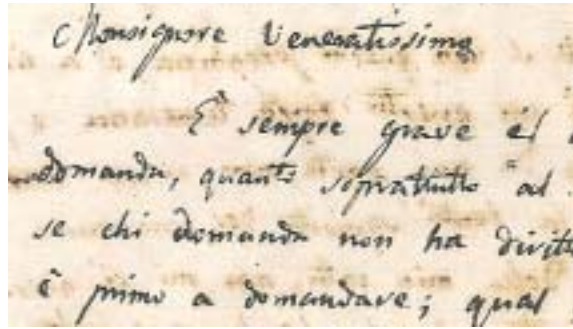 Monsignore Veneratissimo
E' sempre grave il
domanda, quanto soprattutto al
se chi domanda non ha diritto
è primo a domandare; qual